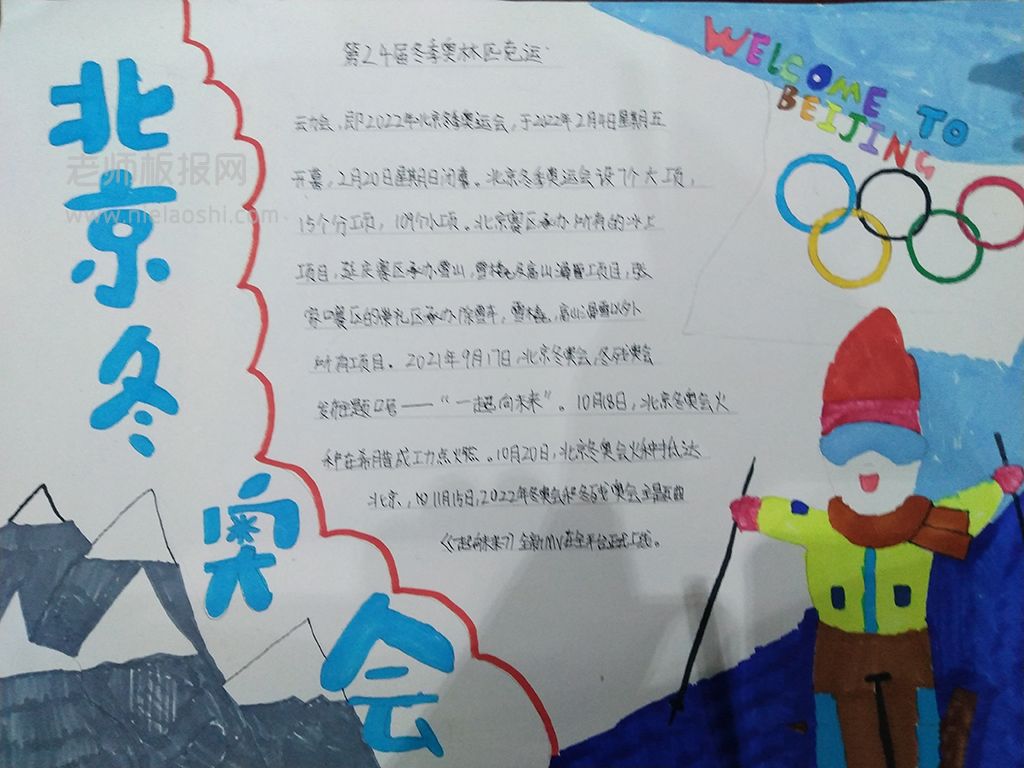 北京冬奥会
WELCOME TO
BEIJING
老师板报网
第24届冬季奥林匹克运
动会,即2022年北京冬季奥运会,于2022年2月4日星期五
开幕,2月20日星期日闭幕。北京冬季奥运会设7个大项,
15个分项,109个小项。北京赛区承办所有的冰上
项目,延庆赛区承办雪山,雪橇及高山滑雪项目,张
家口赛区的崇礼区承办除雪车,雪橇,高山滑雪以外
所有项目。2021年9月17日,北京冬奥会,冬残奥会
发布主题口号——“一起向未来”。10月18日,北京冬奥会火
种在希腊成功点燃。10月20日,北京冬奥会火种抵达
北京,11月15日,2022年冬奥会和冬残奥会主题曲
《一起向未来》全新MV在全平台正式上线。